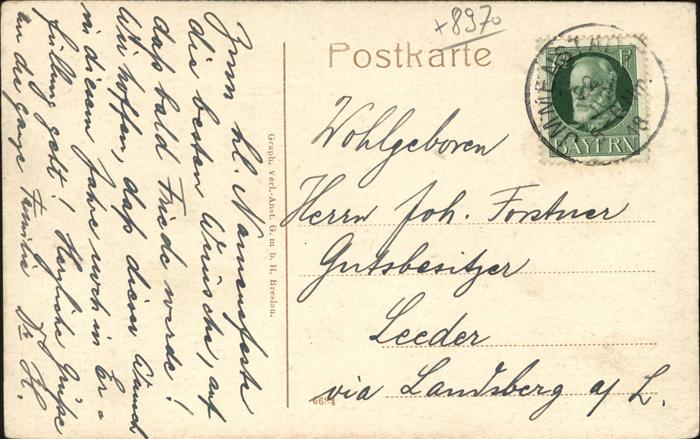 + 8970
Postkarte
IMMENSTADT
22
18
BAYERN
Zum hl. Namensfeste
die besten Wünsche, auf
daß bald Friede werde!
Wir hoffen, daß dieser Wunsch
in diesem Jahre noch in Er=
füllung geht! Herzliche Grüße
an die ganze Familie Dr. H.
Graph. Verl.-Anst. G. m. b. H. Breslau.
Wohlgeboren
Herrn Joh. Forstner
Gutsbesitzer
Leeder
via Landsberg a/L.